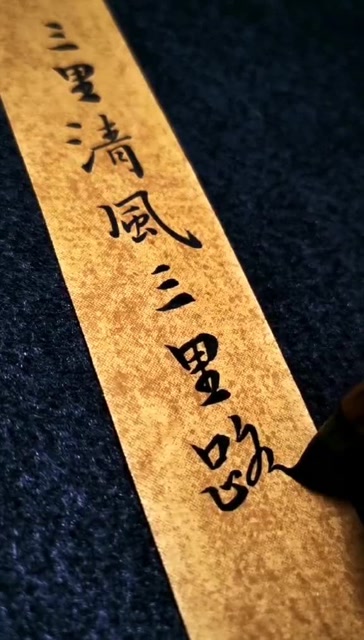 三里清風三里路